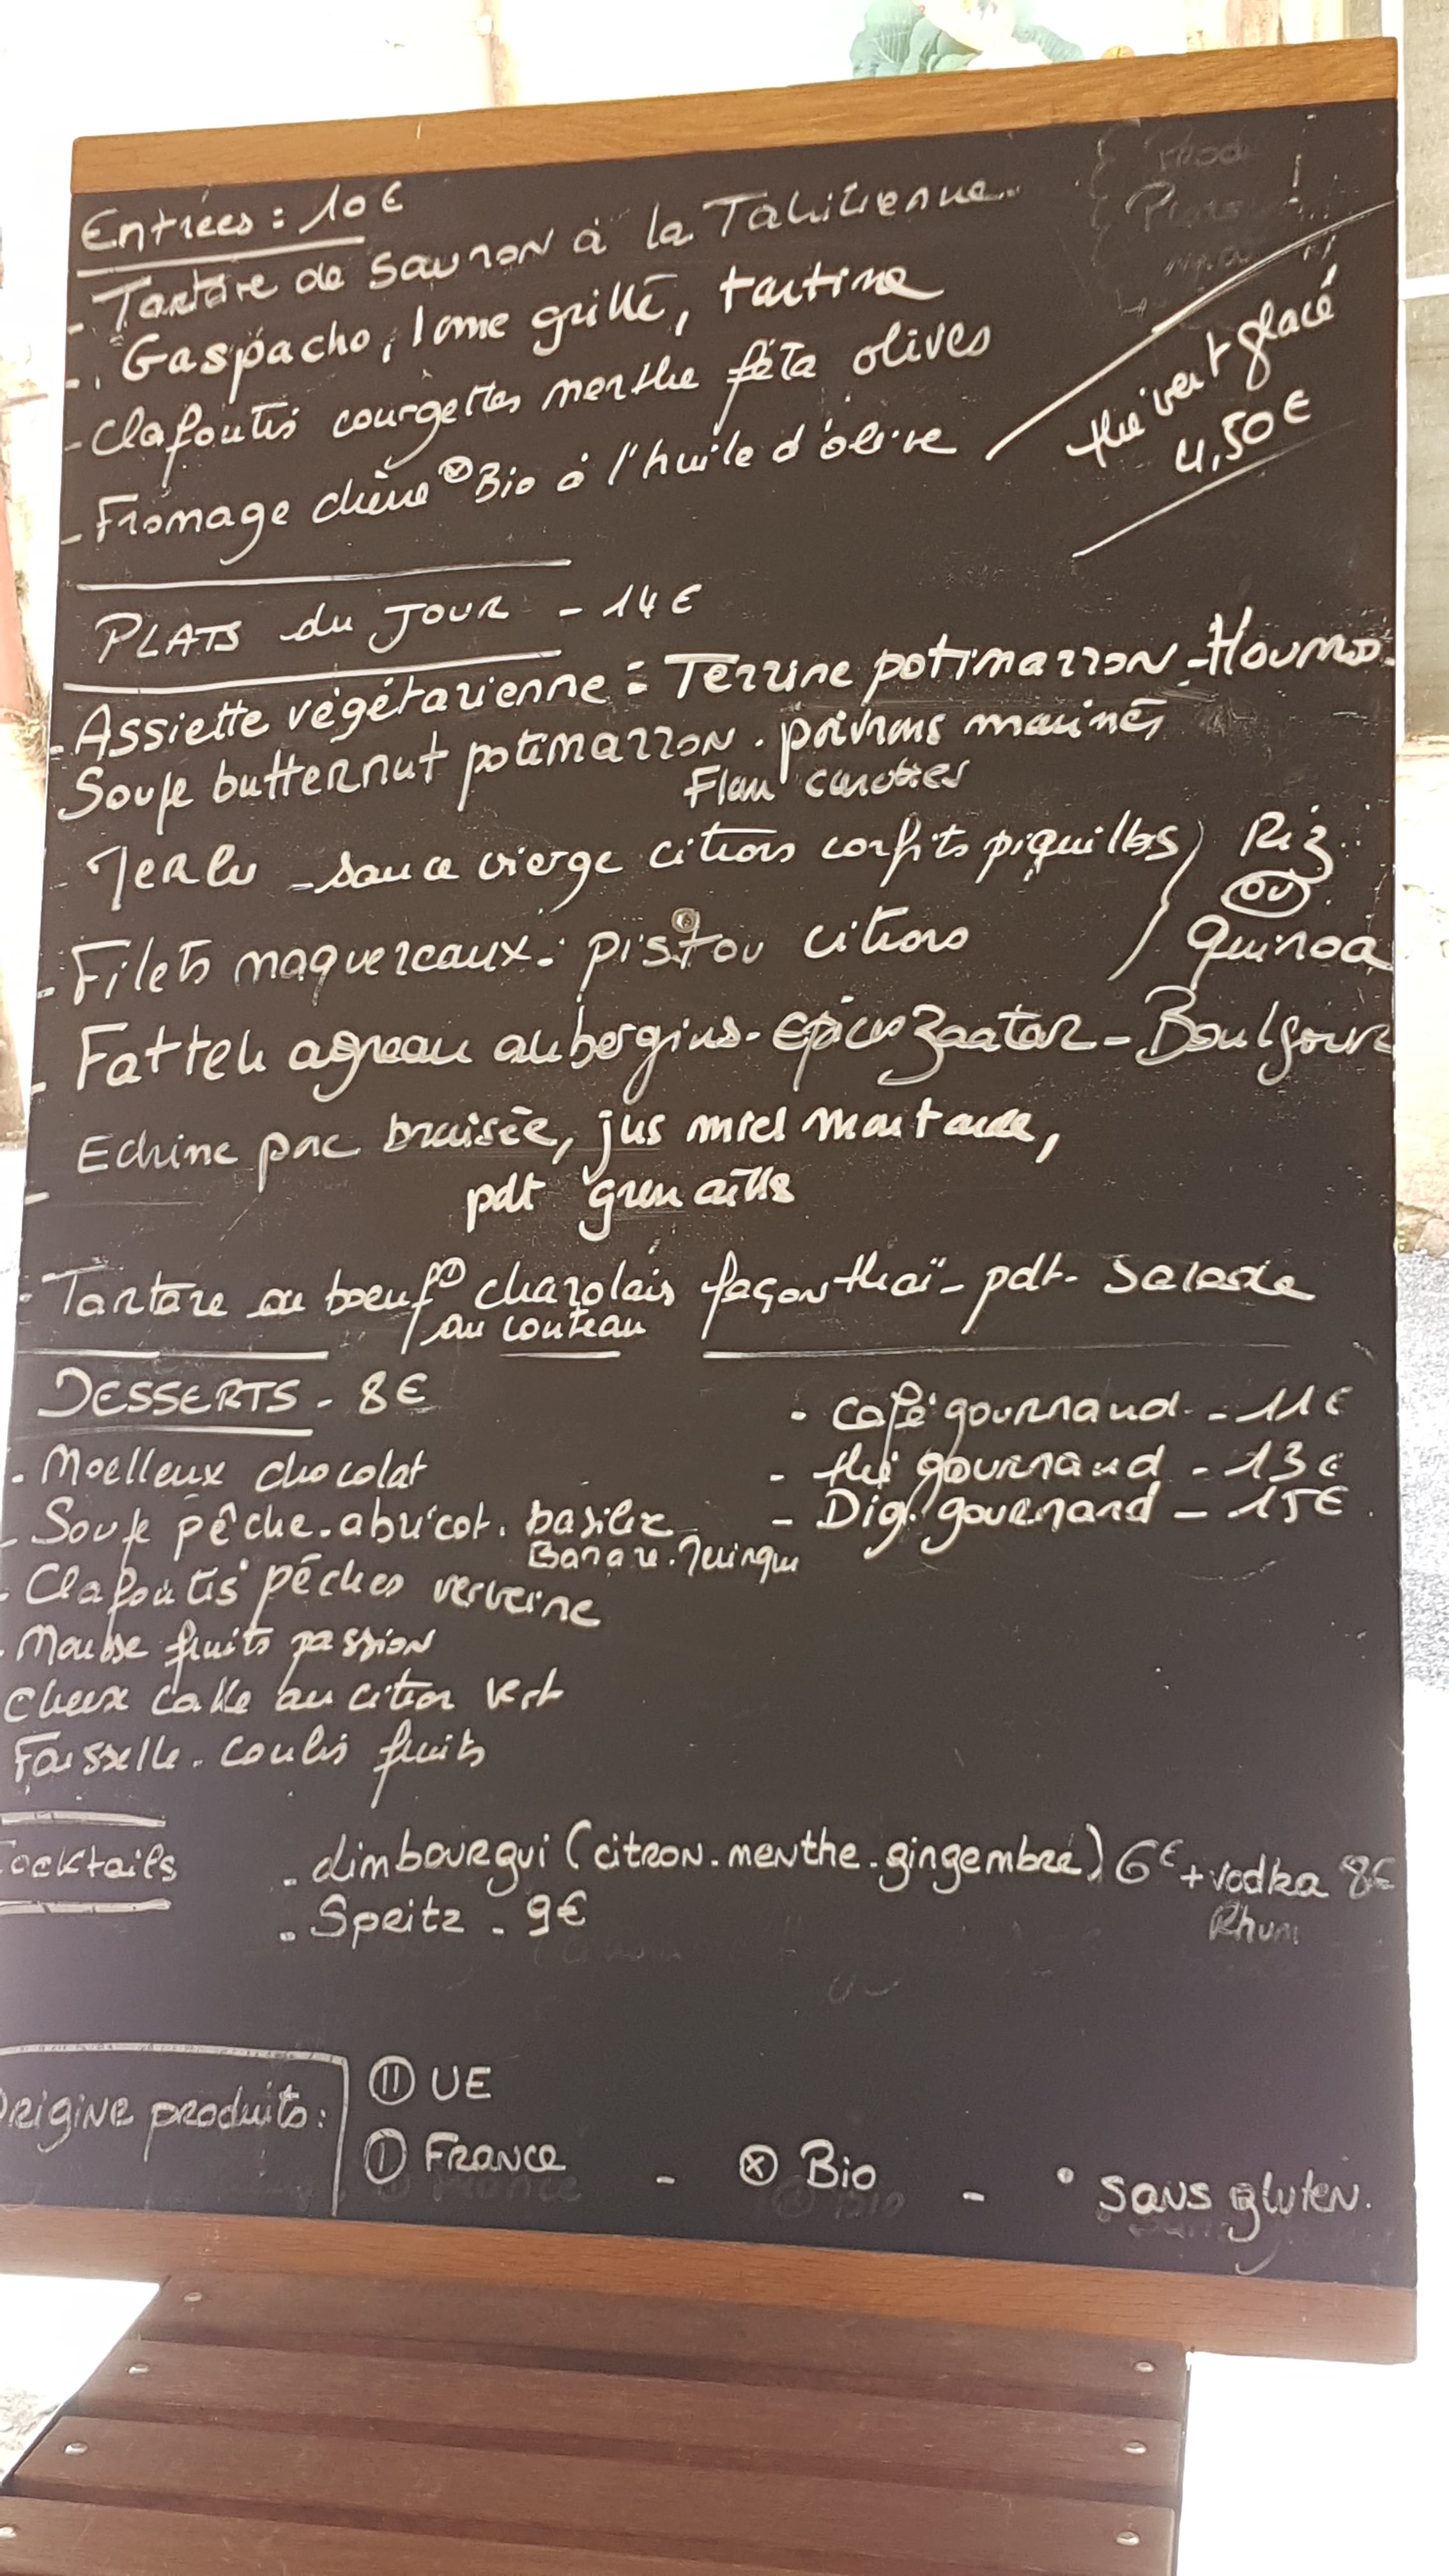 Entrées : 10€
- Tartare de Saumon à la Tahitienne.
- Gaspacho, lome grillé, tartine
- Clafoutis courgettes menthe féta olives
- Fromage chèvre ⓧ Bio à l'huile d'olive
thé vert glacé
4,50€
PLATS du JOUR - 14€
- Assiette végétarienne = Terrine potimarron - Houmos -
Soupe butternut potimarron . poivrons marinés
Flan carottes
- Merlu - sauce vierge citrons confits piquillos
Riz
ou
Quinoa
- Filets maquereaux - pistou citrons
- Fatteh agneau aubergines - épices zaatar - Boulgour
- Echine porc braisée, jus miel moutarde,
pdt grenailles
- Tartare au boeuf Ⓘ charolais façon thaï - pdt - Salade
au couteau
DESSERTS - 8€
- Moelleux chocolat
- Soupe pêche-abricot. basilic
Banane.
- Clafoutis pêches verveine
- Mousse fruits passion
Cheese cake au citron vert
Faisselle. Coulis fruits
- Café gourmand - 11€
- thé gourmand - 13€
- Dig. gourmand - 15€
Cocktails
- Limbourgui (citron.menthe.gingembre) 6€ + vodka 8€
Rhum
- Spritz - 9€
Origine produits :
Ⓘⓘ UE
Ⓘ France - ⓧ Bio - • sans gluten.